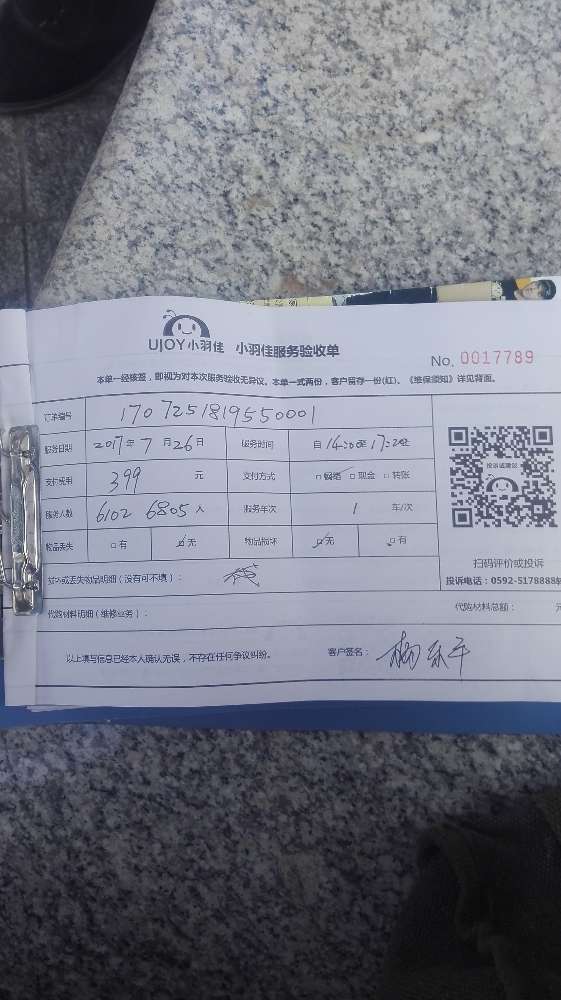 UJOY小羽佳 小羽佳服务验收单
No. 0017789
本单一经核签，即视为对本次服务验收无异议。本单一式两份，客户留存一份(红)。《维保须知》详见背面。
订单编号 1707251819550001
服务日期 2017年7月26日 服务时间 自14:00至17:20
支付费用 399 元 支付方式 □现金 □转账
服务人数 6102 6805人 服务车次 1 车/次
物品丢失 □有 □无 物品损坏 □无 □有
投诉或建议
扫码评价或投诉
投诉电话：0592-5178888
损坏或丢失物品明细（没有可不填）：
代购材料明细（维修业务）： 代购材料总额： 元
以上填写信息已经本人确认无误，不存在任何争议纠纷。 客户签名：